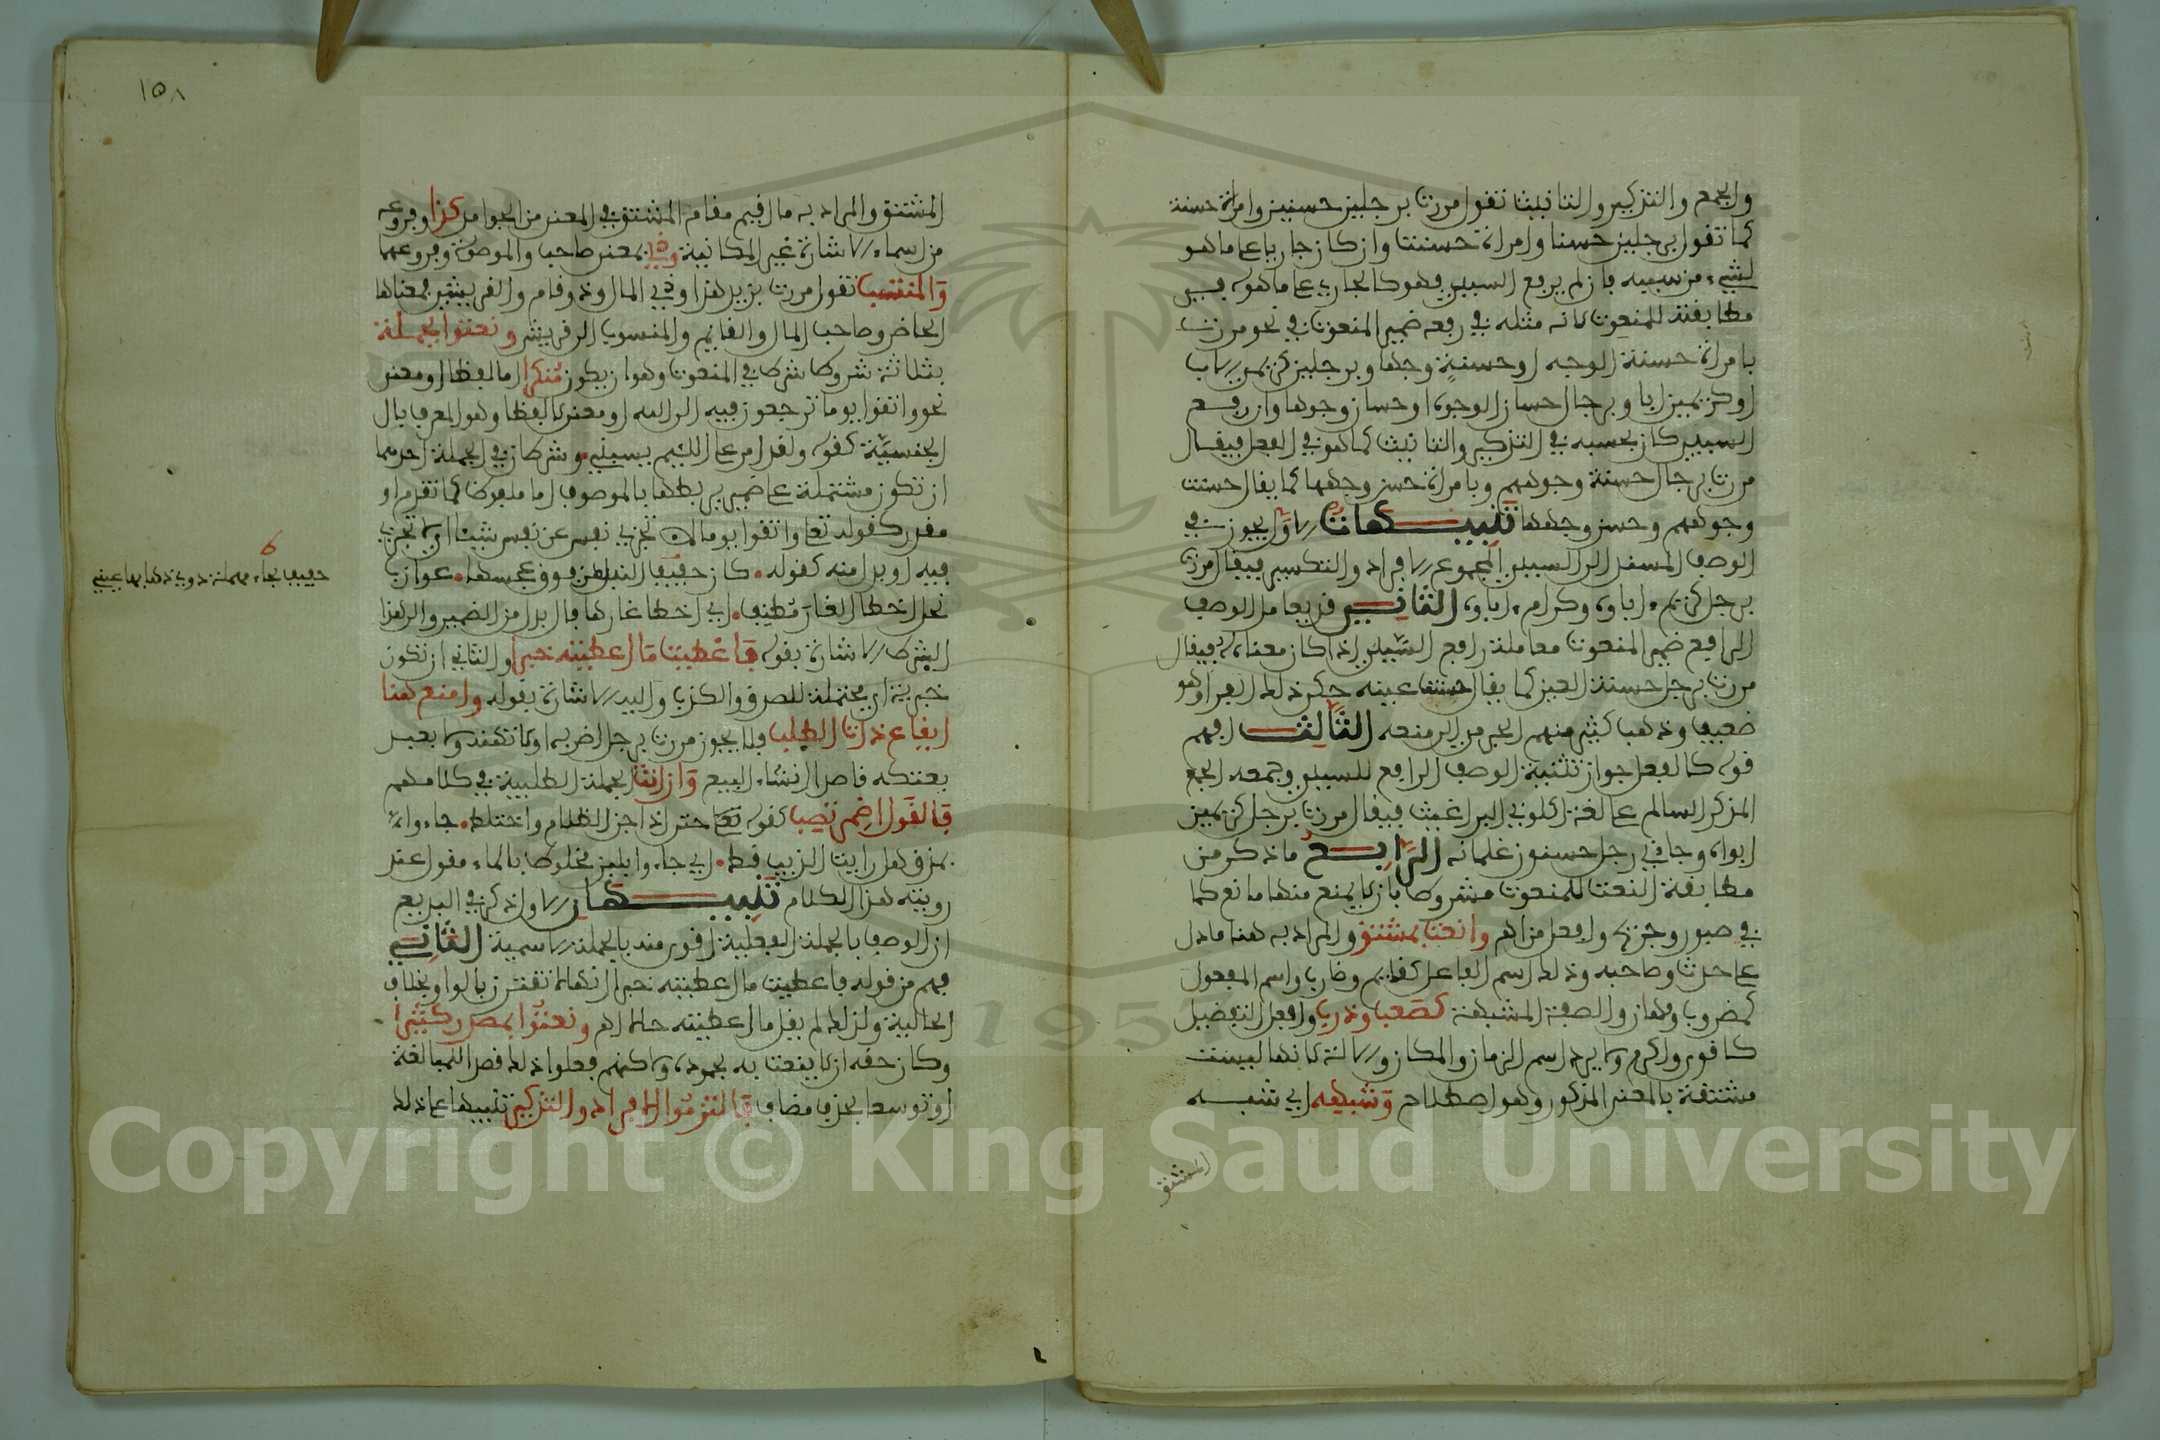 والجمع والتذكير والتانيث تقول مررت برجلين حسنين وامراة حسنة
كما تقول برجلين حسنا وامراة حسنت وان كان جاريا على ما هو
لشيء من سببيه فان لم يرفع السببي فهو كالجاري على ما هو له في
مطابقته للمنعوت لانه مثله في رفعه ضمير المنعوت في نحو مررت
بامراة حسنة الوجه او حسنة وجها وبرجلين كريمي الاب
او كريمين ابا وبرجال حسان الوجوه او حسان وجوها وان رفع
السببي كان بحسبه في التذكير والتانيث كما هو في الفعل فيقال
مررت برجال حسنة وجوههم وبامراة حسن وجهها كما يقال حسنت
وجوههم وحسن وجهها تنبيهات الاول يجوز في
الوصف المسند الى السببي المجموع الافراد والتكسير فيقال مررت
برجل كريم اباؤه وكرام اباؤه الثاني قد يعامل الوصف
الرافع ضمير المنعوت معاملة رافع السببي اذا كان معناه له فيقال
مررت برجل حسنة العين كما يقال حسنت عينه حكى ذلك الفراء وهو
ضعيف وذهب كثير منهم الجرمي الى منعه الثالث افهم
قوله كالفعل جواز تثنية الوصف الرافع للسببي وجمعه الجمع
المذكر السالم على لغة اكلوني البراغيث فيقال مررت برجل كريمين
ابواه وجاني رجل حسنون غلمانه الرابع ما ذكر من
مطابقة النعت للمنعوت مشروط بان لا يمنع منها مانع كما
في صبور وجريح وافعل من اهـ وانعت بمشتق والمراد به هنا ما دل
على حدث وصاحبه وذلك اسم الفاعل كقايم وضارب واسم المفعول
كمضروب ومهان والصفة المشبهة كصعب وذرب وافعل التفضيل
كاقوى واكرم ولا يرد اسم الزمان والمكان والالة لانها ليست
مشتقة بالمعنى المذكور وهو اصطلاح وشبهه اي شبه
المشتق
١٥٨
المشتق والمراد به ما اقيم مقام المشتق في المعنى من الجوامد كذا وفروعه
من اسماء الاشارة غير المكانية وذي بمعنى صاحب والموصولة وفروعهما
والمنتسب تقول مررت بزيد هذا وذي المال وذو قام والقرشي فمعناها
الحاضر وصاحب المال والقايم والمنسوب الى قريش ونعتوا بجملة
بثلاثة شروط شرط في المنعوت وهو ان يكون منكرا اما لفظا ومعنى
نحو واتقوا يوما ترجعون فيه الى الله او معنى لا لفظا وهو المعرف بال
الجنسية كقوله ولقد امر على اللئيم يسبني وشرطان في الجملة احدهما
ان تكون مشتملة على ضمير يربطها بالموصوف اما ملفوظ كما تقدم او
مقدر كقوله تعالى واتقوا يوما لا تجزي نفس عن نفس شيئا اي لا تجزي
فيه او بدل منه كقوله كان حفيف النبل من فوق عجسها عوازب
نحل اخطا الغار مطنف اي اخطا غارها فال بدل من الضمير والى هذا
الشرط الاشارة بقوله فاعطيت ما اعطيته خبرا والثاني ان تكون
خبرية اي محتملة للصدق والكذب واليه الاشارة بقوله وامنع هنا
ايقاع ذات الطلب فلا يجوز مررت برجل اضربه او لا تهنه ولا بعبد
بعتكه قاصدا لانشاء البيع وان اتت الجملة الطلبية في كلامهم
فالقول اضمر تصب كقوله حتى اذا جن الظلام واختلط جاءوا
بمذق هل رايت الذيب قط اي جاءوا بلبن مخلوط بالماء مقول عند
رويته هذا الكلام تنبيهان الاول ذكر في البديع
ان الوصف بالجملة الفعلية اقوى منه بالجملة الاسمية الثاني
فهم من قوله فاعطيت ما اعطيته خبرا انها لا تقترن بالواو بخلاف
الحالية ولذلك لم يقل ما اعطيته حالا اهـ ونعتوا بمصدر كثيرا
وكان حقه ان لا ينعت به لجموده ولكنهم فعلوا ذلك قصدا للمبالغة
او توسعا بحذف مضاف فالتزموا الافراد والتذكير تنبيها على ذلك
حفيف بحاء مهملة دوي ذهابها عيني